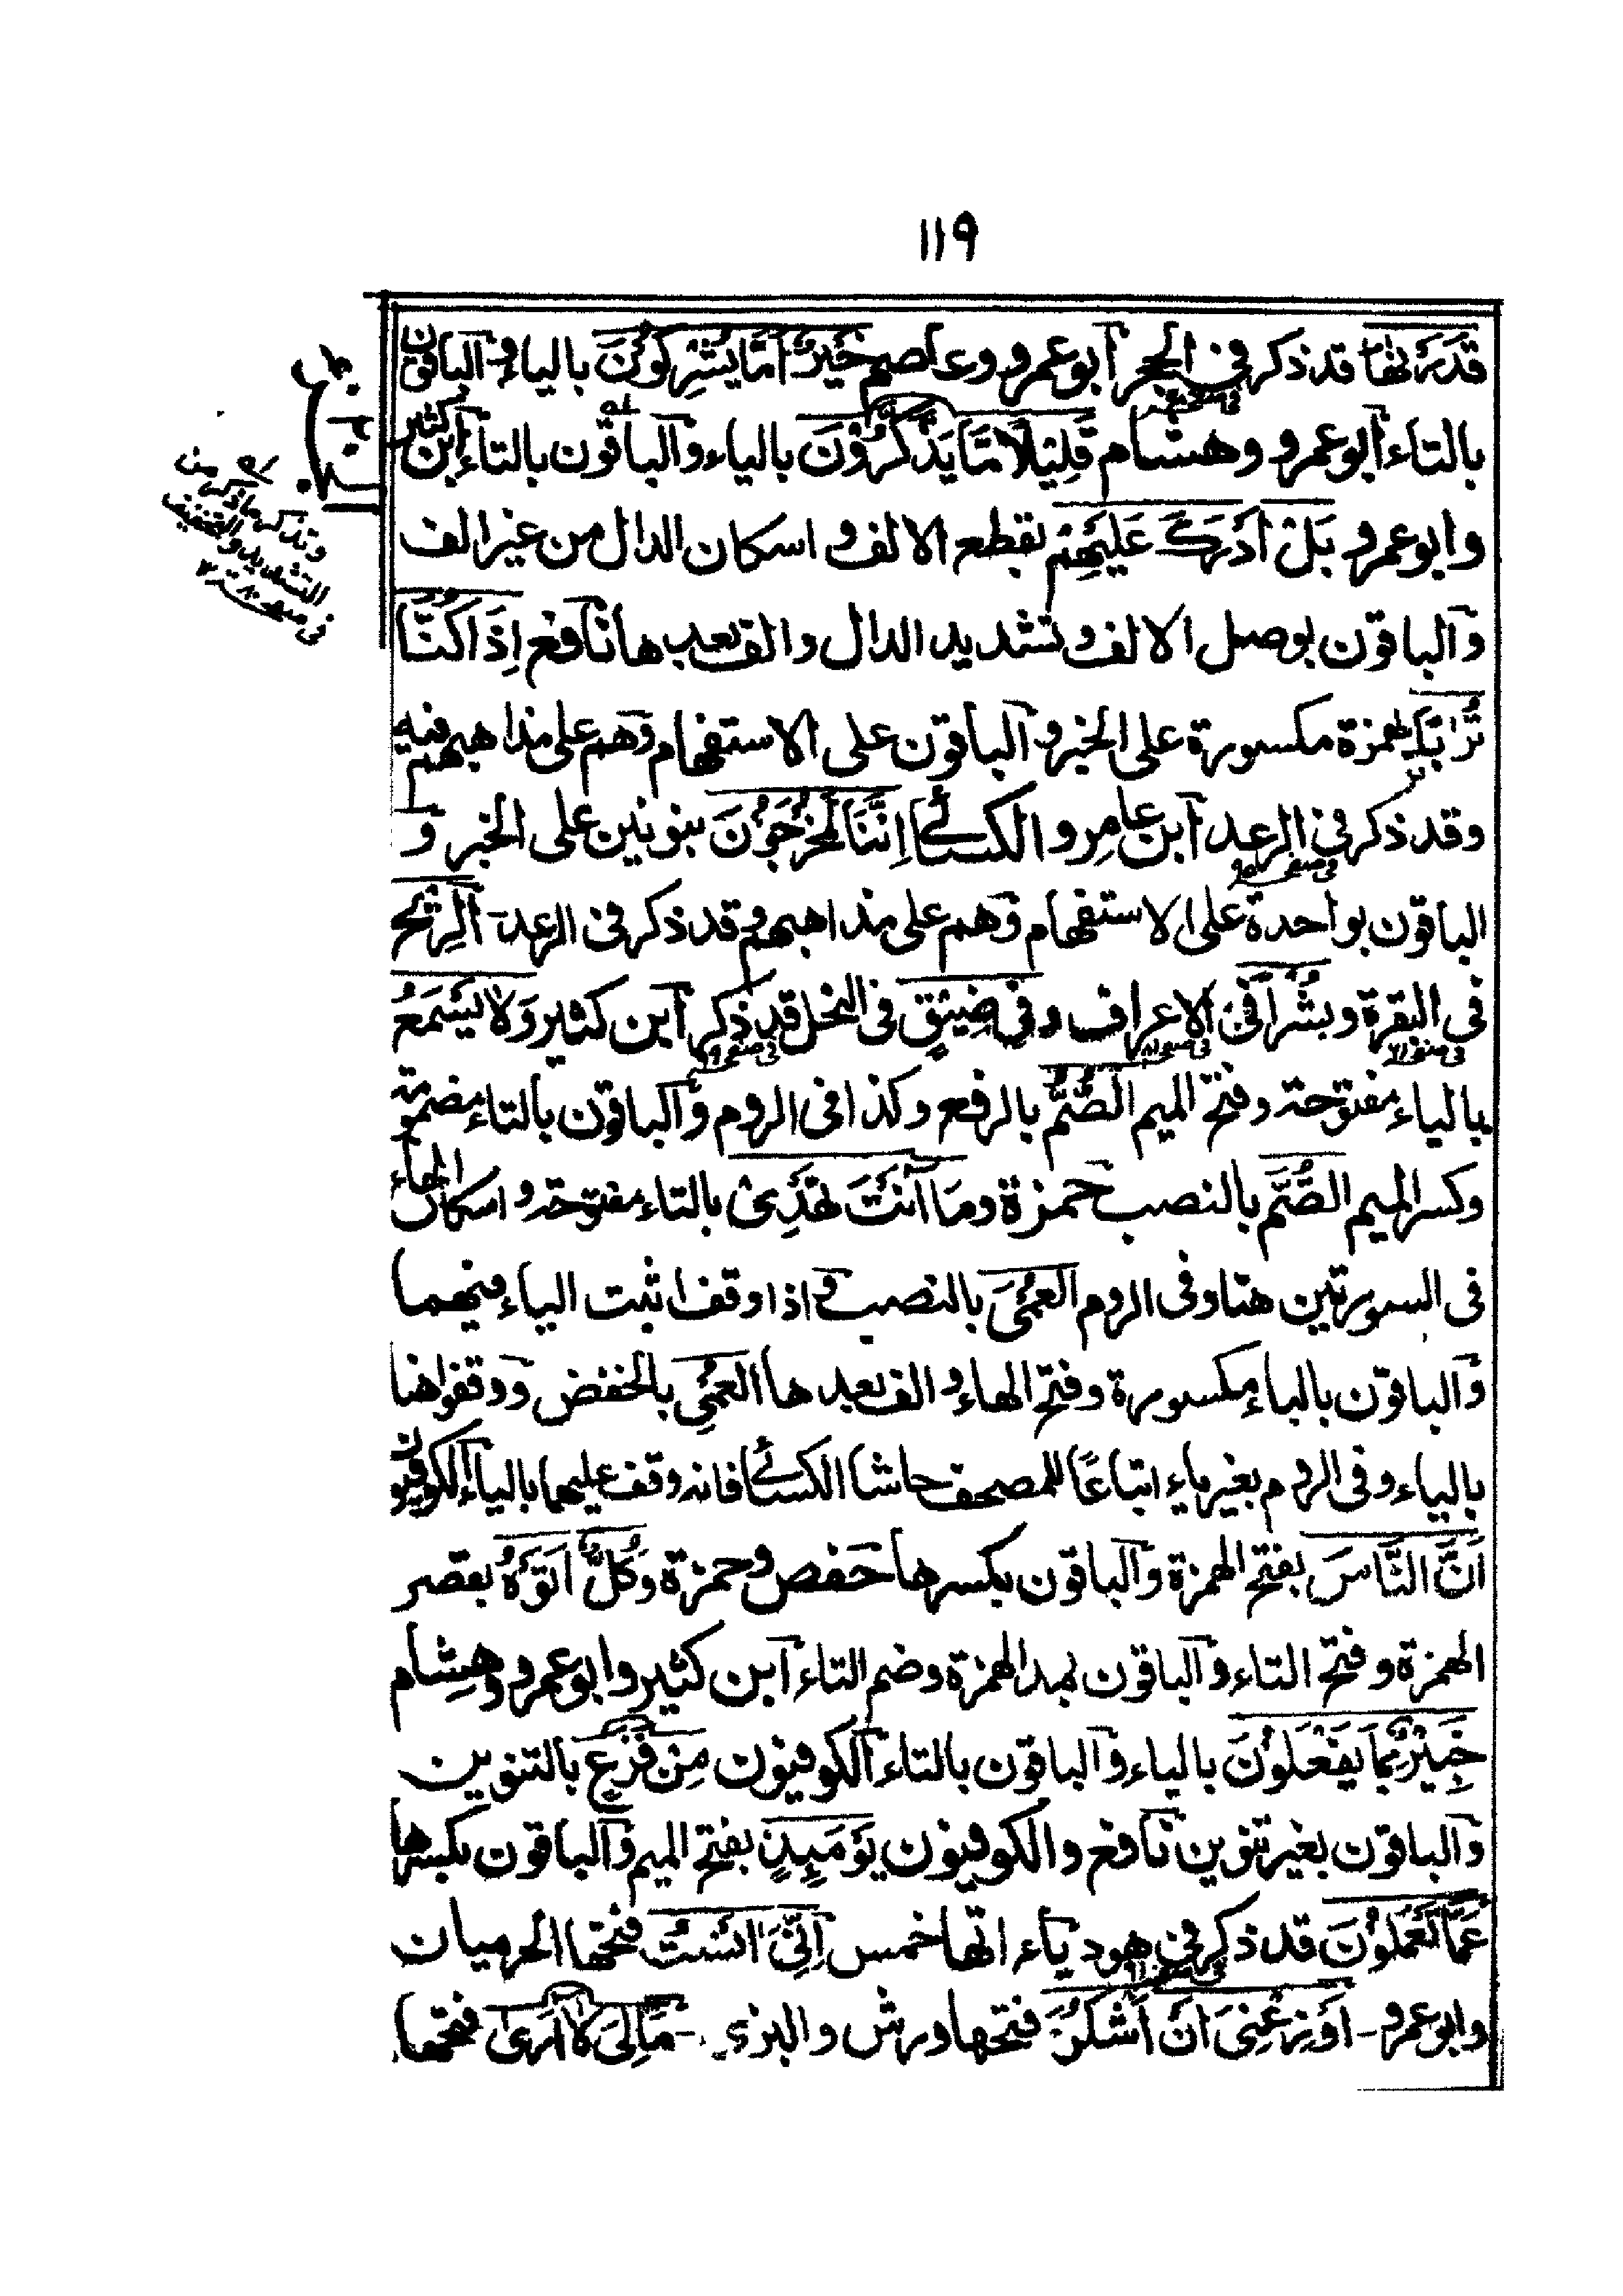 ١١٩
قَدَّرْنٰهَا قد ذكر فى الحجر ابو عمرو وعاصم خَيْرٌ اَمَّا يُشْرِكُوْنَ بالياء والباقون
بالتاء ابو عمرو وهشام قَلِيْلًا مَّا يَذَّكَّرُوْنَ بالياء والباقون بالتاء ابن كثير
وابو عمرو بَلْ اَدْرَكَ عَلِمُهُمْ بقطع الالف و اسكان الدال من غير الف
والباقون بوصل الالف و تشديد الدال والف بعدها نافع اِذَا كُنَّا
تُرٰبًا بهمزة مكسورة على الخبر والباقون على الاستفهام وهم على مذاهبهم فيه
وقد ذكر فى الرعد ابن عامر و الكسائى اِنَّنَا لَمُخْرَجُوْنَ بنونين على الخبر و
الباقون بواحدة على الاستفهام وهم على مذاهبهم وقد ذكر فى الرعد الرِّيْحَ
فى البقرة و بُشْرًا فى الاعراف وفى ضَيْقٍ فى النحل قد ذكر ابن كثير وَلَا يَسْمَعُ
بالياء مفتوحة وفتح الميم الصُّمُّ بالرفع وكذا فى الروم والباقون بالتاء مضمومة
وكسر الميم الصُّمَّ بالنصب حمزة وَمَا اَنْتَ تَهْدِىْ بالتاء مفتوحة و اسكان الهاء
فى السورتين هنا وفى الروم العُمْىَ بالنصب و اذا وقف اثبت الياء فيهما
والباقون بالباء مكسورة وفتح الهاء و الف بعدها العُمْىِ بالخفض ووقفوا هنا
بالياء وفى الروم بغير ياء اتباعًا للمصحف حاشا الكسائى فانه وقف عليهما بالياء الكوفيون
اَنَّ النَّاسَ بفتح الهمزة والباقون بكسرها حفص وحمزة وَكُلٌّ اَتَوْهُ بقصر
الهمزة وفتح التاء والباقون بمد الهمزة وضم التاء ابن كثير وابو عمرو وهشام
خَبِيْرٌ بِمَا يَفْعَلُوْنَ بالياء والباقون بالتاء الكوفيون مِنْ فَزَعٍ بالتنوين
والباقون بغير تنوين نافع والكوفيون يَوْمَئِذٍ بفتح الميم والباقون بكسرها
عَمَّا تَعْمَلُوْنَ قد ذكر فى هود ياء اتها خمس اِنِّىْ اٰنَسْتُ فتحها الحرميان
وابو عمرو - اَوْزِعْنِىْ اَنْ اَشْكُرَ فتحها ورش والبزى - مَا لِىَ لَا اَرَى فتحها
وتذكر ما ذكر من
التشديد والتخفيف